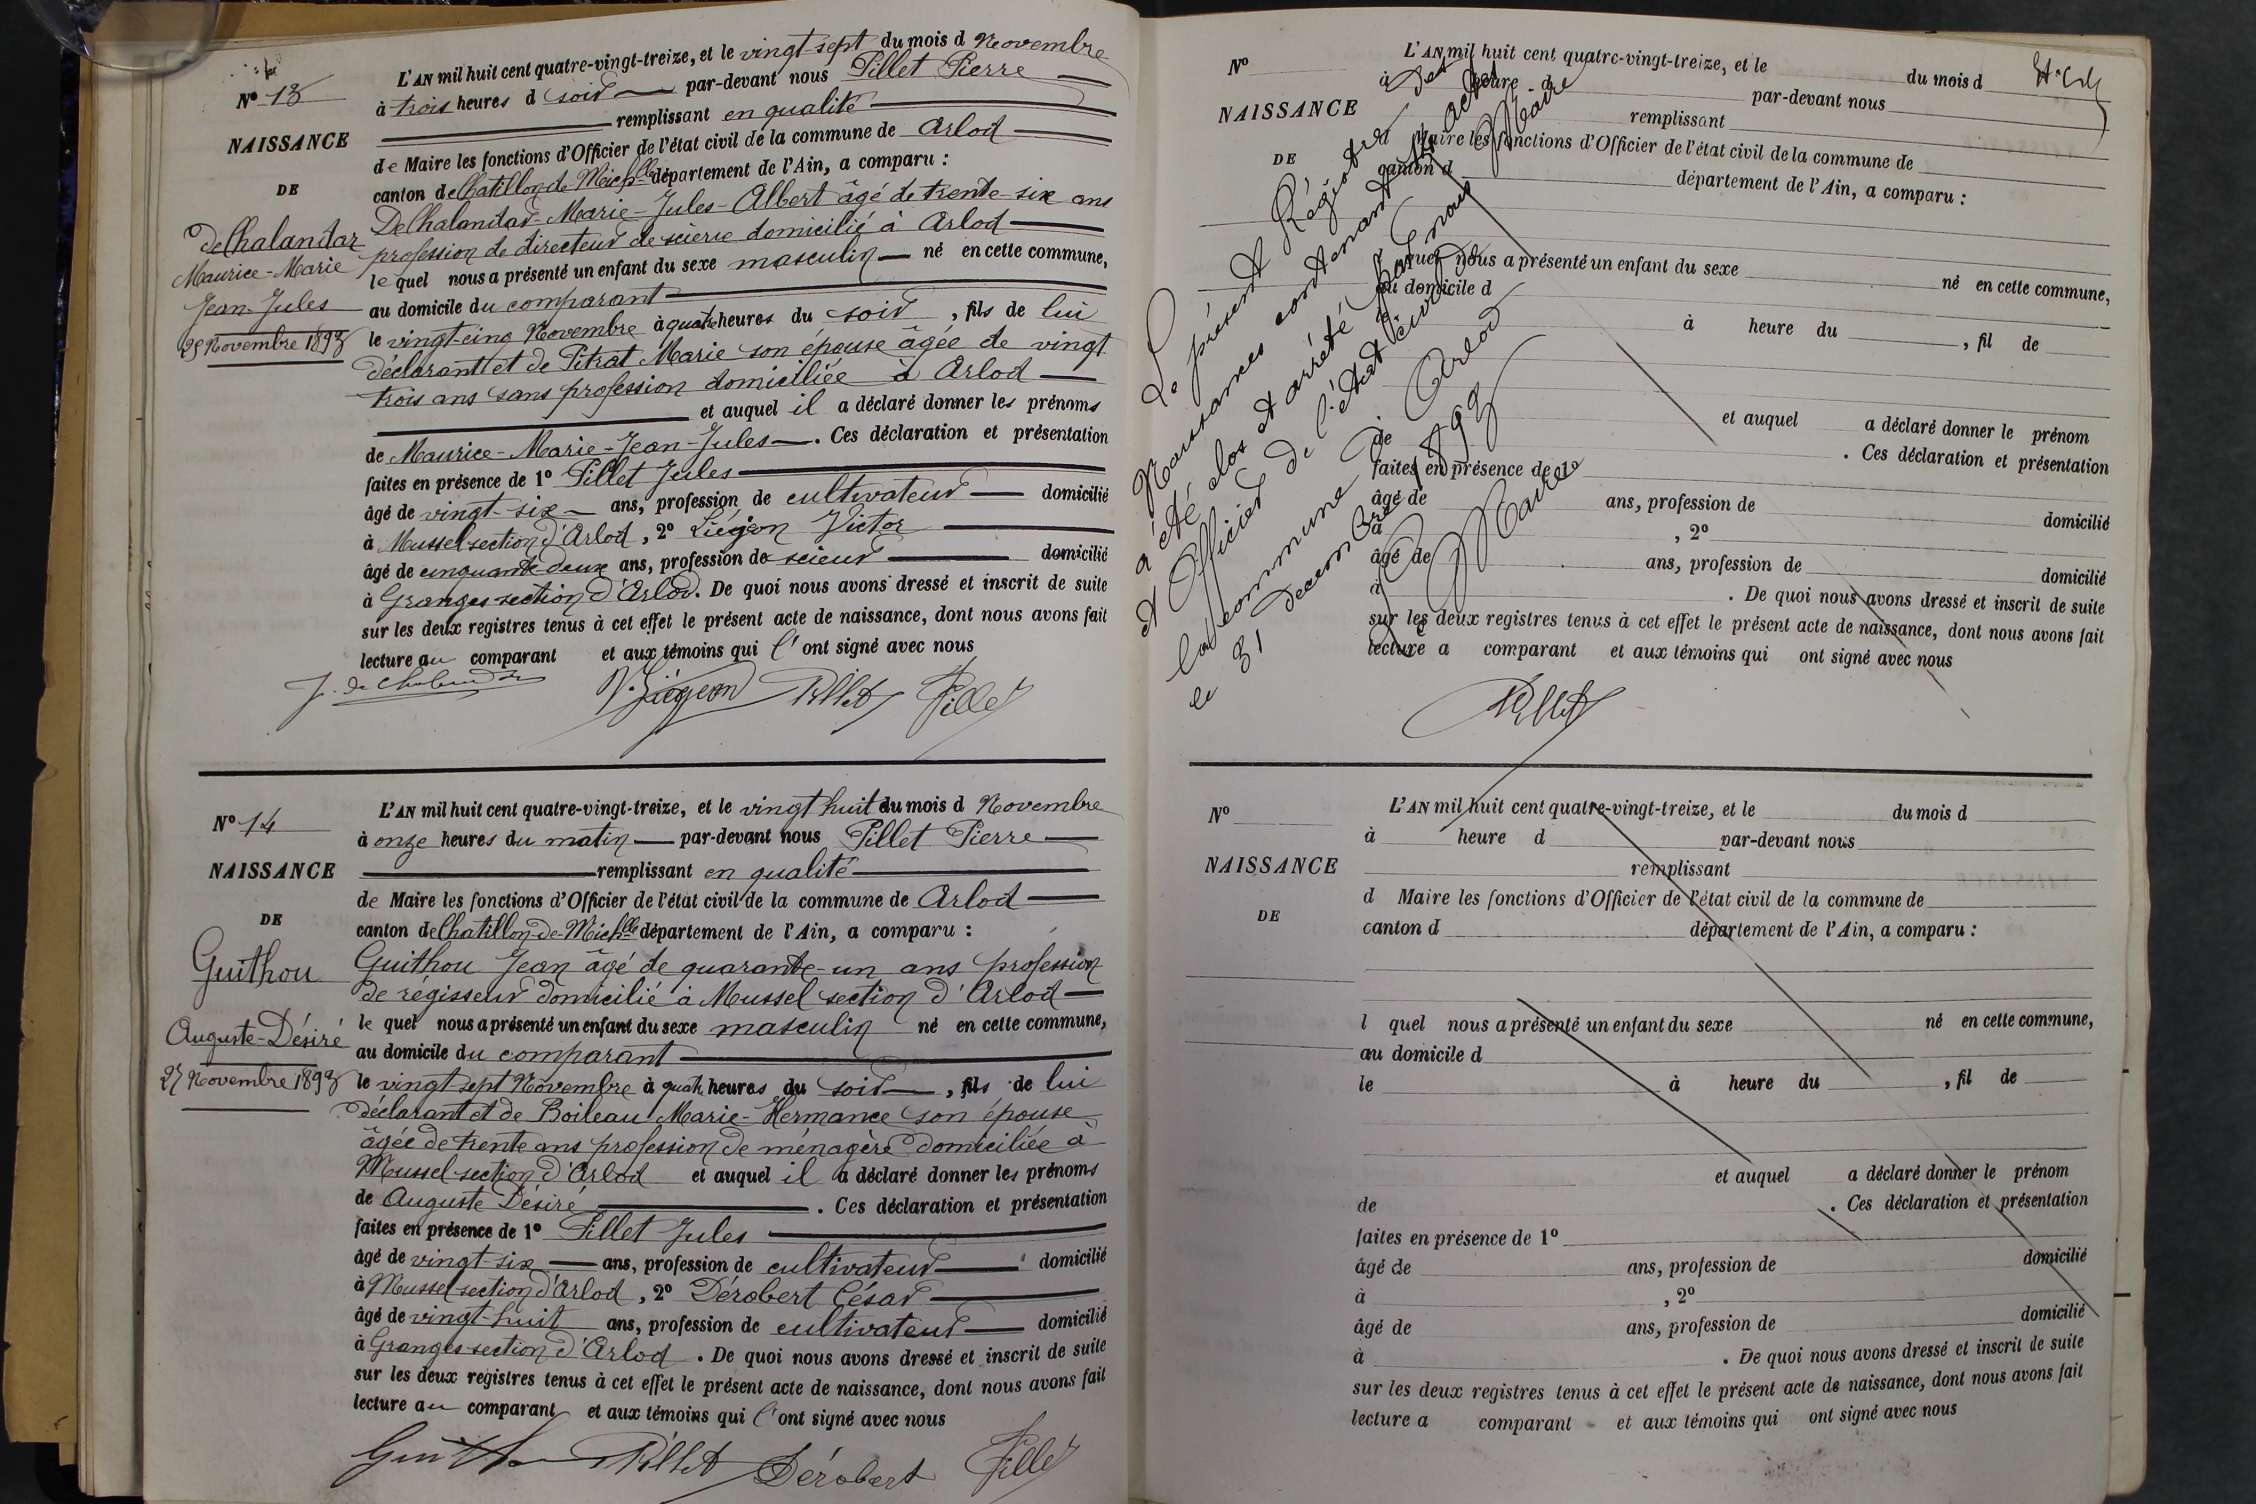 L'AN mil huit cent quatre-vingt-treize, et le vingt-sept du mois d Novembre
à trois heures d soir par-devant nous Pillet Pierre
remplissant en qualité
de Maire les fonctions d'Officier de l'état civil de la commune de Arlod
canton de Chatillon de Michlle département de l'Ain, a comparu :
De Chalandar Marie-Jules-Albert âgé de trente-six ans
profession de directeur de scierie domicilié à Arlod
le quel nous a présenté un enfant du sexe masculin né en cette commune,
au domicile du comparant
le vingt-cinq Novembre à quatre heures du soir, fils de lui
déclarant et de Pitrat Marie son épouse âgée de vingt
trois ans sans profession domiciliée à Arlod
et auquel il a déclaré donner les prénoms
de Maurice-Marie-Jean-Jules. Ces déclaration et présentation
faites en présence de 1° Pillet Jules
âgé de vingt-six ans, profession de cultivateur domicilié
à Mussel section d'Arlod, 2° Liégeon Victor
âgé de cinquante-deux ans, profession de scieur domicilié
à Granges section d'Arlod. De quoi nous avons dressé et inscrit de suite
sur les deux registres tenus à cet effet le présent acte de naissance, dont nous avons fait
lecture au comparant et aux témoins qui l'ont signé avec nous
J. de Chalandar V. Liégeon Pillet Pillet
N° 13
NAISSANCE
DE
De Chalandar
Maurice-Marie
Jean-Jules
25 Novembre 1893
L'AN mil huit cent quatre-vingt-treize, et le vingt huit du mois d Novembre
à onze heures du matin par-devant nous Pillet Pierre
remplissant en qualité
de Maire les fonctions d'Officier de l'état civil de la commune de Arlod
canton de Chatillon-de-Michlle département de l'Ain, a comparu :
Guithou Jean âgé de quarante-un ans profession
de régisseur domicilié à Mussel section d'Arlod
le quel nous a présenté un enfant du sexe masculin né en cette commune,
au domicile du comparant
le vingt-sept Novembre à quatre heures du soir, fils de lui
déclarant et de Boileau Marie-Hermance son épouse
âgée de trente ans profession de ménagère domiciliée à
Mussel section d'Arlod et auquel il a déclaré donner les prénoms
de Auguste Désiré. Ces déclaration et présentation
faites en présence de 1° Pillet Jules
âgé de vingt-six ans, profession de cultivateur domicilié
à Mussel section d'Arlod, 2° Dérobert César
âgé de vingt-huit ans, profession de cultivateur domicilié
à Granges section d'Arlod. De quoi nous avons dressé et inscrit de suite
sur les deux registres tenus à cet effet le présent acte de naissance, dont nous avons fait
lecture au comparant et aux témoins qui l'ont signé avec nous
Guithou Pillet Dérobert Pillet
N° 14
NAISSANCE
DE
Guithou
Auguste-Désiré
27 Novembre 1893
N°
NAISSANCE
DE
L'AN mil huit cent quatre-vingt-treize, et le du mois d
à heure d par-devant nous
remplissant
d Maire les fonctions d'Officier de l'état civil de la commune de
canton d département de l'Ain, a comparu :
l quel nous a présenté un enfant du sexe né en cette commune,
au domicile d
à heure du , fil de
et auquel a déclaré donner le prénom
de . Ces déclaration et présentation
faites en présence de 1°
âgé de ans, profession de domicilié
à , 2°
âgé de ans, profession de domicilié
à . De quoi nous avons dressé et inscrit de suite
sur les deux registres tenus à cet effet le présent acte de naissance, dont nous avons fait
lecture a comparant et aux témoins qui ont signé avec nous
Le présent Régistre des
Naissances contenant 14 actes
a été clos et arrêté par nous Maire
et Officier de l'état civil de
la commune d'Arlod
le 31 decembre 1893
Le Maire
Pillet
N°
NAISSANCE
DE
L'AN mil huit cent quatre-vingt-treize, et le du mois d
à heure d par-devant nous
remplissant
d Maire les fonctions d'Officier de l'état civil de la commune de
canton d département de l'Ain, a comparu :
l quel nous a présenté un enfant du sexe né en cette commune,
au domicile d
le à heure du , fil de
et auquel a déclaré donner le prénom
de . Ces déclaration et présentation
faites en présence de 1°
âgé de ans, profession de domicilié
à , 2°
âgé de ans, profession de domicilié
à . De quoi nous avons dressé et inscrit de suite
sur les deux registres tenus à cet effet le présent acte de naissance, dont nous avons fait
lecture a comparant et aux témoins qui ont signé avec nous